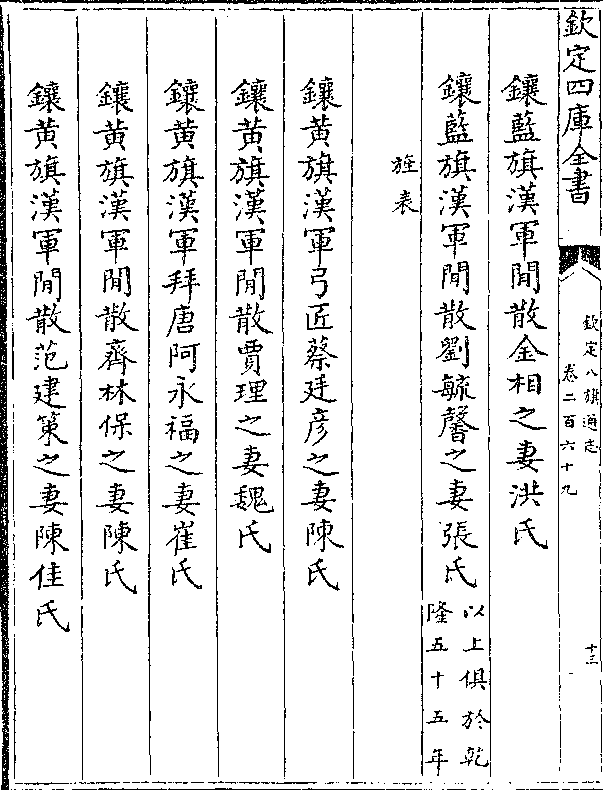 欽定四庫全書
欽定八旗通志
卷二百六十九
十三
鑲藍旗漢軍閒散金相之妻洪氏
鑲藍旗漢軍閒散劉毓馨之妻張氏以上俱於乾隆五十五年
旌表
鑲黃旗漢軍弓匠蔡廷彥之妻陳氏
鑲黃旗漢軍閒散賈理之妻魏氏
鑲黃旗漢軍拜唐阿永福之妻崔氏
鑲黃旗漢軍閒散齊林保之妻陳氏
鑲黃旗漢軍閒散范建策之妻陳佳氏